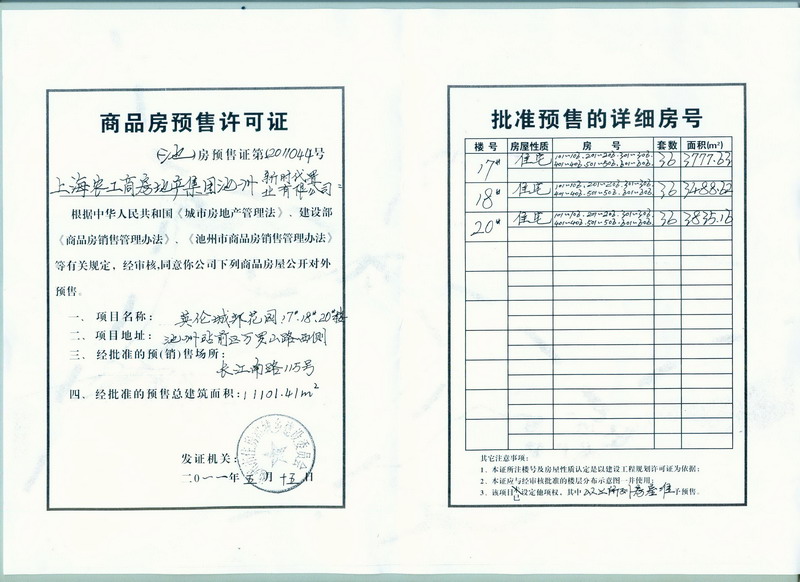 商品房预售许可证
(池)房预售证第2011044号
上海农工商房地产集团池州新时代置业有限公司:
根据中华人民共和国《城市房地产管理法》、建设部
《商品房销售管理办法》、《池州市商品房销售管理办法》
等有关规定，经审核,同意你公司下列商品房屋公开对外
预售。
一、项目名称: 英伦城邦花园17#.18#.20#楼
二、项目地址: 池州站前区万罗山路西侧
三、经批准的预(销)售场所:
长江南路115号
四、经批准的预售总建筑面积:11101.41m²
发证机关:
二〇一一年五月十五日
批准预售的详细房号
楼号 房屋性质 房号 套数 面积(m²)
17# 住宅 101-106.201-206.301-306. 401-406.501-506.601-606. 36 3777.63
18# 住宅 101-106.201-206.301-306. 401-406.501-506.601-606. 36 3488.62
20# 住宅 101-106.201-206.301-306. 401-406.501-506.601-606. 36 3835.16
其它注意事项:
1、本证所注楼号及房屋性质认定是以建设工程规划许可证为依据;
2、本证应与经审核批准的楼层分布示意图一并使用;
3、该项目已设定他项权，其中以上所列房屋准予预售。